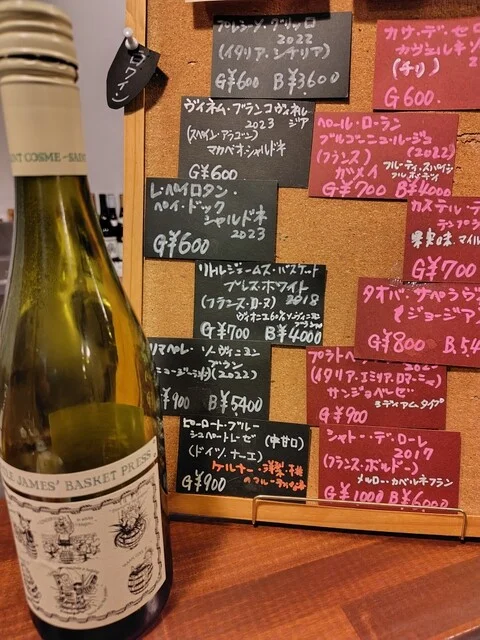 NT COSME - SA
LE JAMES' BASKET PRESS
白ワイン
2022
(イタリア・シチリア)
G¥600 B¥3600
ヴィネム・ブランコヴィネル
2023
(スペイン・アラゴン)
マカベオ・シャルドネ
G¥600
レ・ペイロタン・
ペイ・ドック
シャルドネ
2023
G¥600
リトルジェームズ・バスケット
プレス・ホワイト
(フランス・ローヌ) 2018
G¥700 B¥4000
リマペレ・ソーヴィニヨン
ブラン
(2022)
¥900 B¥5400
ピーロート・ブルー
シュペートレーゼ (中甘口)
(ドイツ・ナーエ)
G¥900
カサ・デ・セ
カヴェルネソ
(チリ)
G600
ペール・ローラン
ブルゴーニュ・ルージュ
(フランス) (2022)
ガメイ フルーティ・スパイシー
G¥700 B¥4000
カステル・デ
テンプラ
果実味、マイル
G¥700
タオバ・サペラヴ
ジョージア
G¥800 B5,4
プラトペ
(イタリア・エミリア・ロマーニャ)
サンジョベーゼ
ミディアムタイプ
G¥900
シャトー・デ・ローレ
2017
(フランス・ボルドー)
メルロー・カベルネフラン
G¥1000 B¥6000